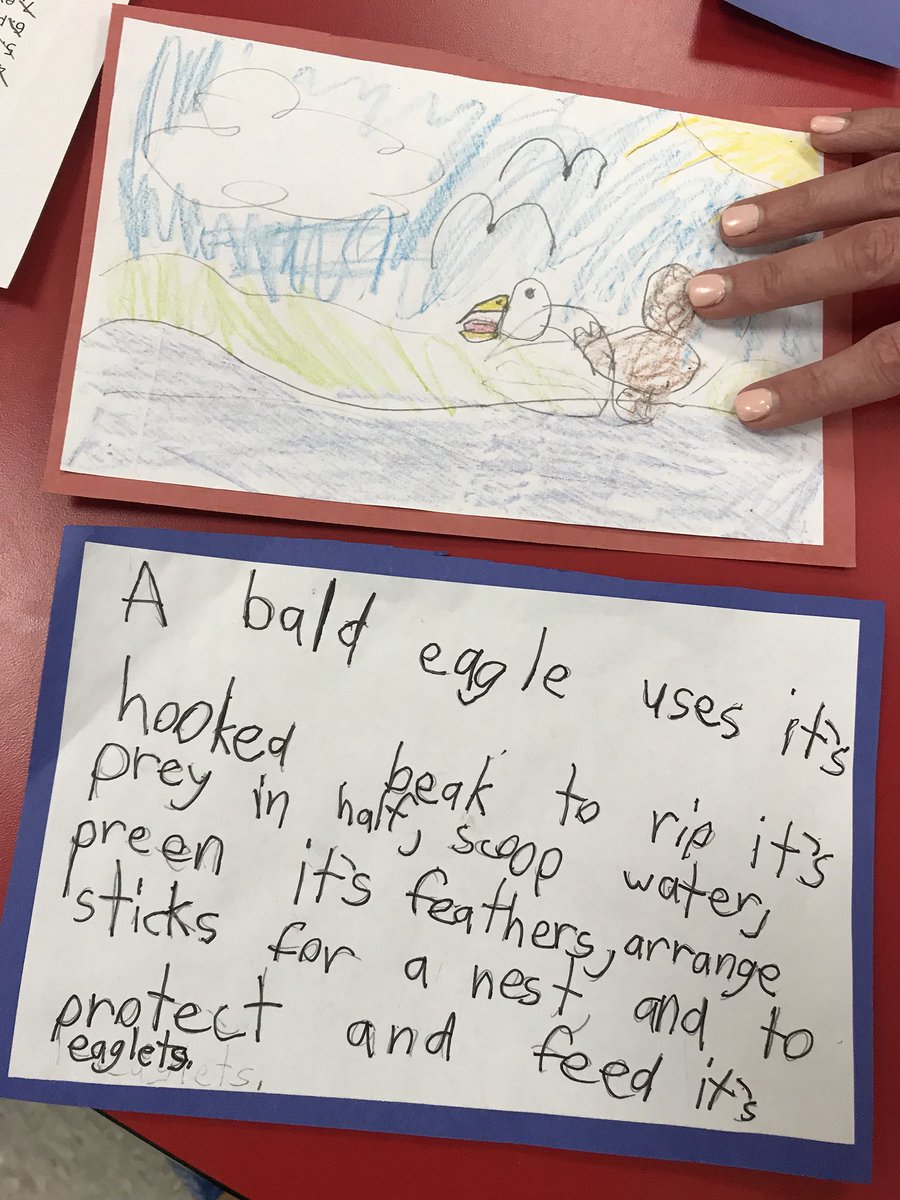 A bald eagle uses it's
hooked beak to rip it's
prey in half, scoop water,
preen it's feathers, arrange
sticks for a nest, and to
protect and feed it's
eaglets.
eaglets.